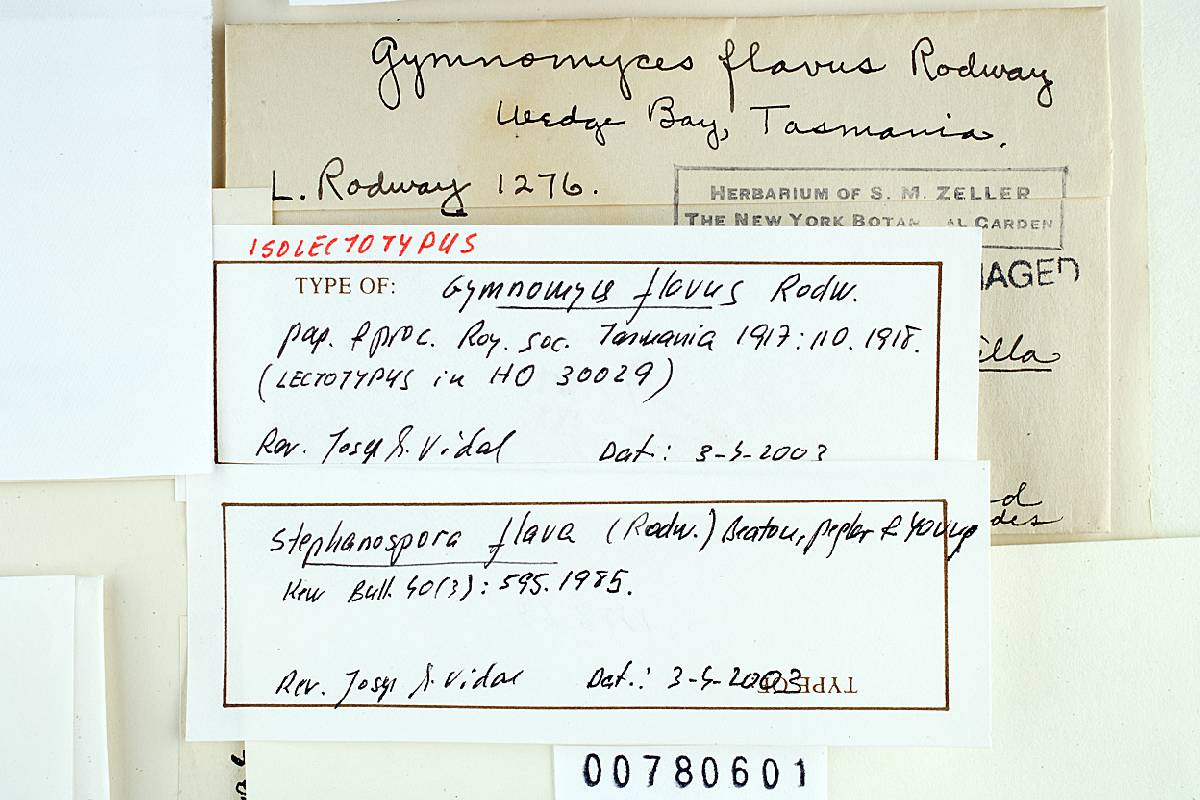 Gymnomyces flavus Rodway
Wedge Bay, Tasmania.
L. Rodway 1276.
HERBARIUM OF S. M. ZELLER
THE NEW YORK BOTAN AL GARDEN
AGED
illa
d
des
ISOLECTOTYPUS
TYPE OF: Gymnomyces flavus Rodw.
pap. & proc. Roy. soc. Tasmania 1917: 110. 1918.
(LECTOTYPUS in HO 30029)
Rev. Josep Vidal Dat.: 3-5-2003
Stephanospora flava (Rodw.) Beaton, Pegler & Young
Kew Bull. 40(3): 595. 1985.
Rev. Josep Vidal Dat.: 3-5-2003
TYPE OF
00780601